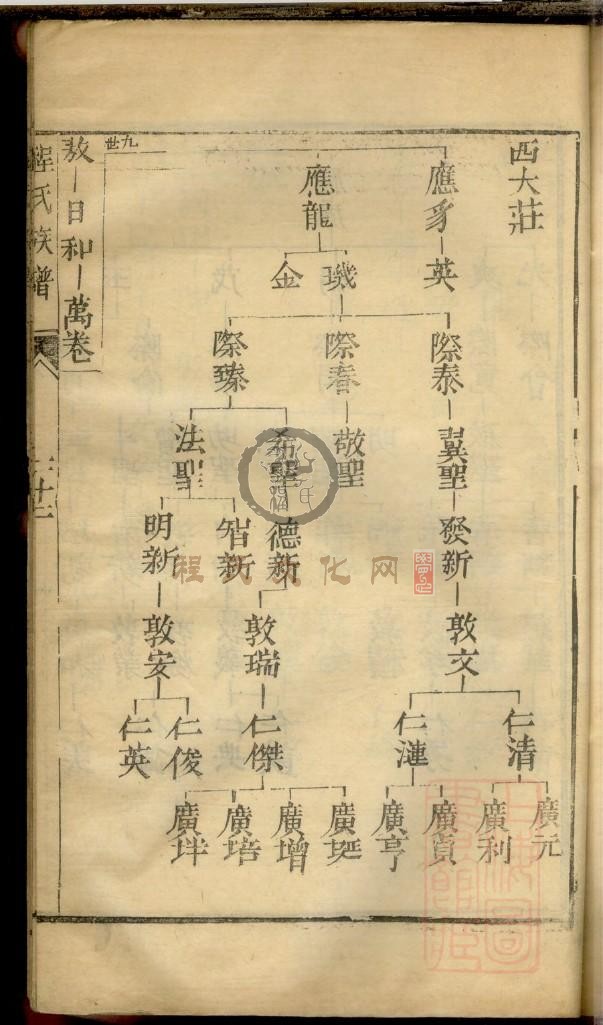 西大莊
應豸 英
應龍 璣 金
際泰 翼聖 發新 敦文
仁清 廣元 廣利
仁漣 廣貞 廣亨
際春 敬聖
際臻
希聖 德新 敦瑞 仁傑
廣埏 廣增 廣培 廣垟
法聖 智新
明新 敦安 仁俊 仁英
九世
敖 日和 萬卷
程氏族譜
二十二
程氏文化网